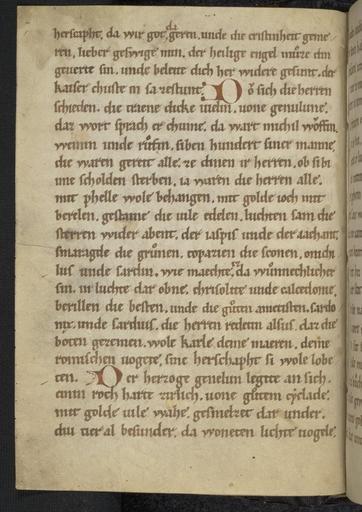 herscapht. da wir got da geren. unde die cristinheit geme
ren. lieber geswige min. der heilige engel muͦze din
geuerte sin. unde beleite dich her widere gesunt. der
kaiser chuste in sa zestunt. Do sich die herren
schieden. die traene dicke uielin. uone genulune.
daz wort sprach er chume. da wart michil woͦffin.
weinin unde ruͦfin. siben hundert siner manne.
die waren gereit alle. ze dinen ir herren. ob si bi
ime scholden sterben. ia waren die herren alle.
mit phelle wole behangen. mit golde ioch mit
berelen. gestaine die uile edelen. luchten sam die
sterren wider abent. der iaspis unde der iachant.
smaragde die gruͦnen. topazien die sconen. onichi
lus unde sardin. wie maechte da wunnechlicher
sin. in luchte dar obne. chrisolite unde calcedonie.
berillen die besten. unde die guͦten ametisten. sardo
nix. unde sardius. die herren redetin alsus. daz die
boten gezemen. wole karle deme maeren. deme
romischen uogete. sine herschapht si wole lobe
ten. Der herzoge genelun legete an sich.
einin roch harte zirlich. uone guͦtem cyclade.
mit golde uile waehe. gesmelzet dar under.
diu tier al besunder. da woneten lichte uogele.